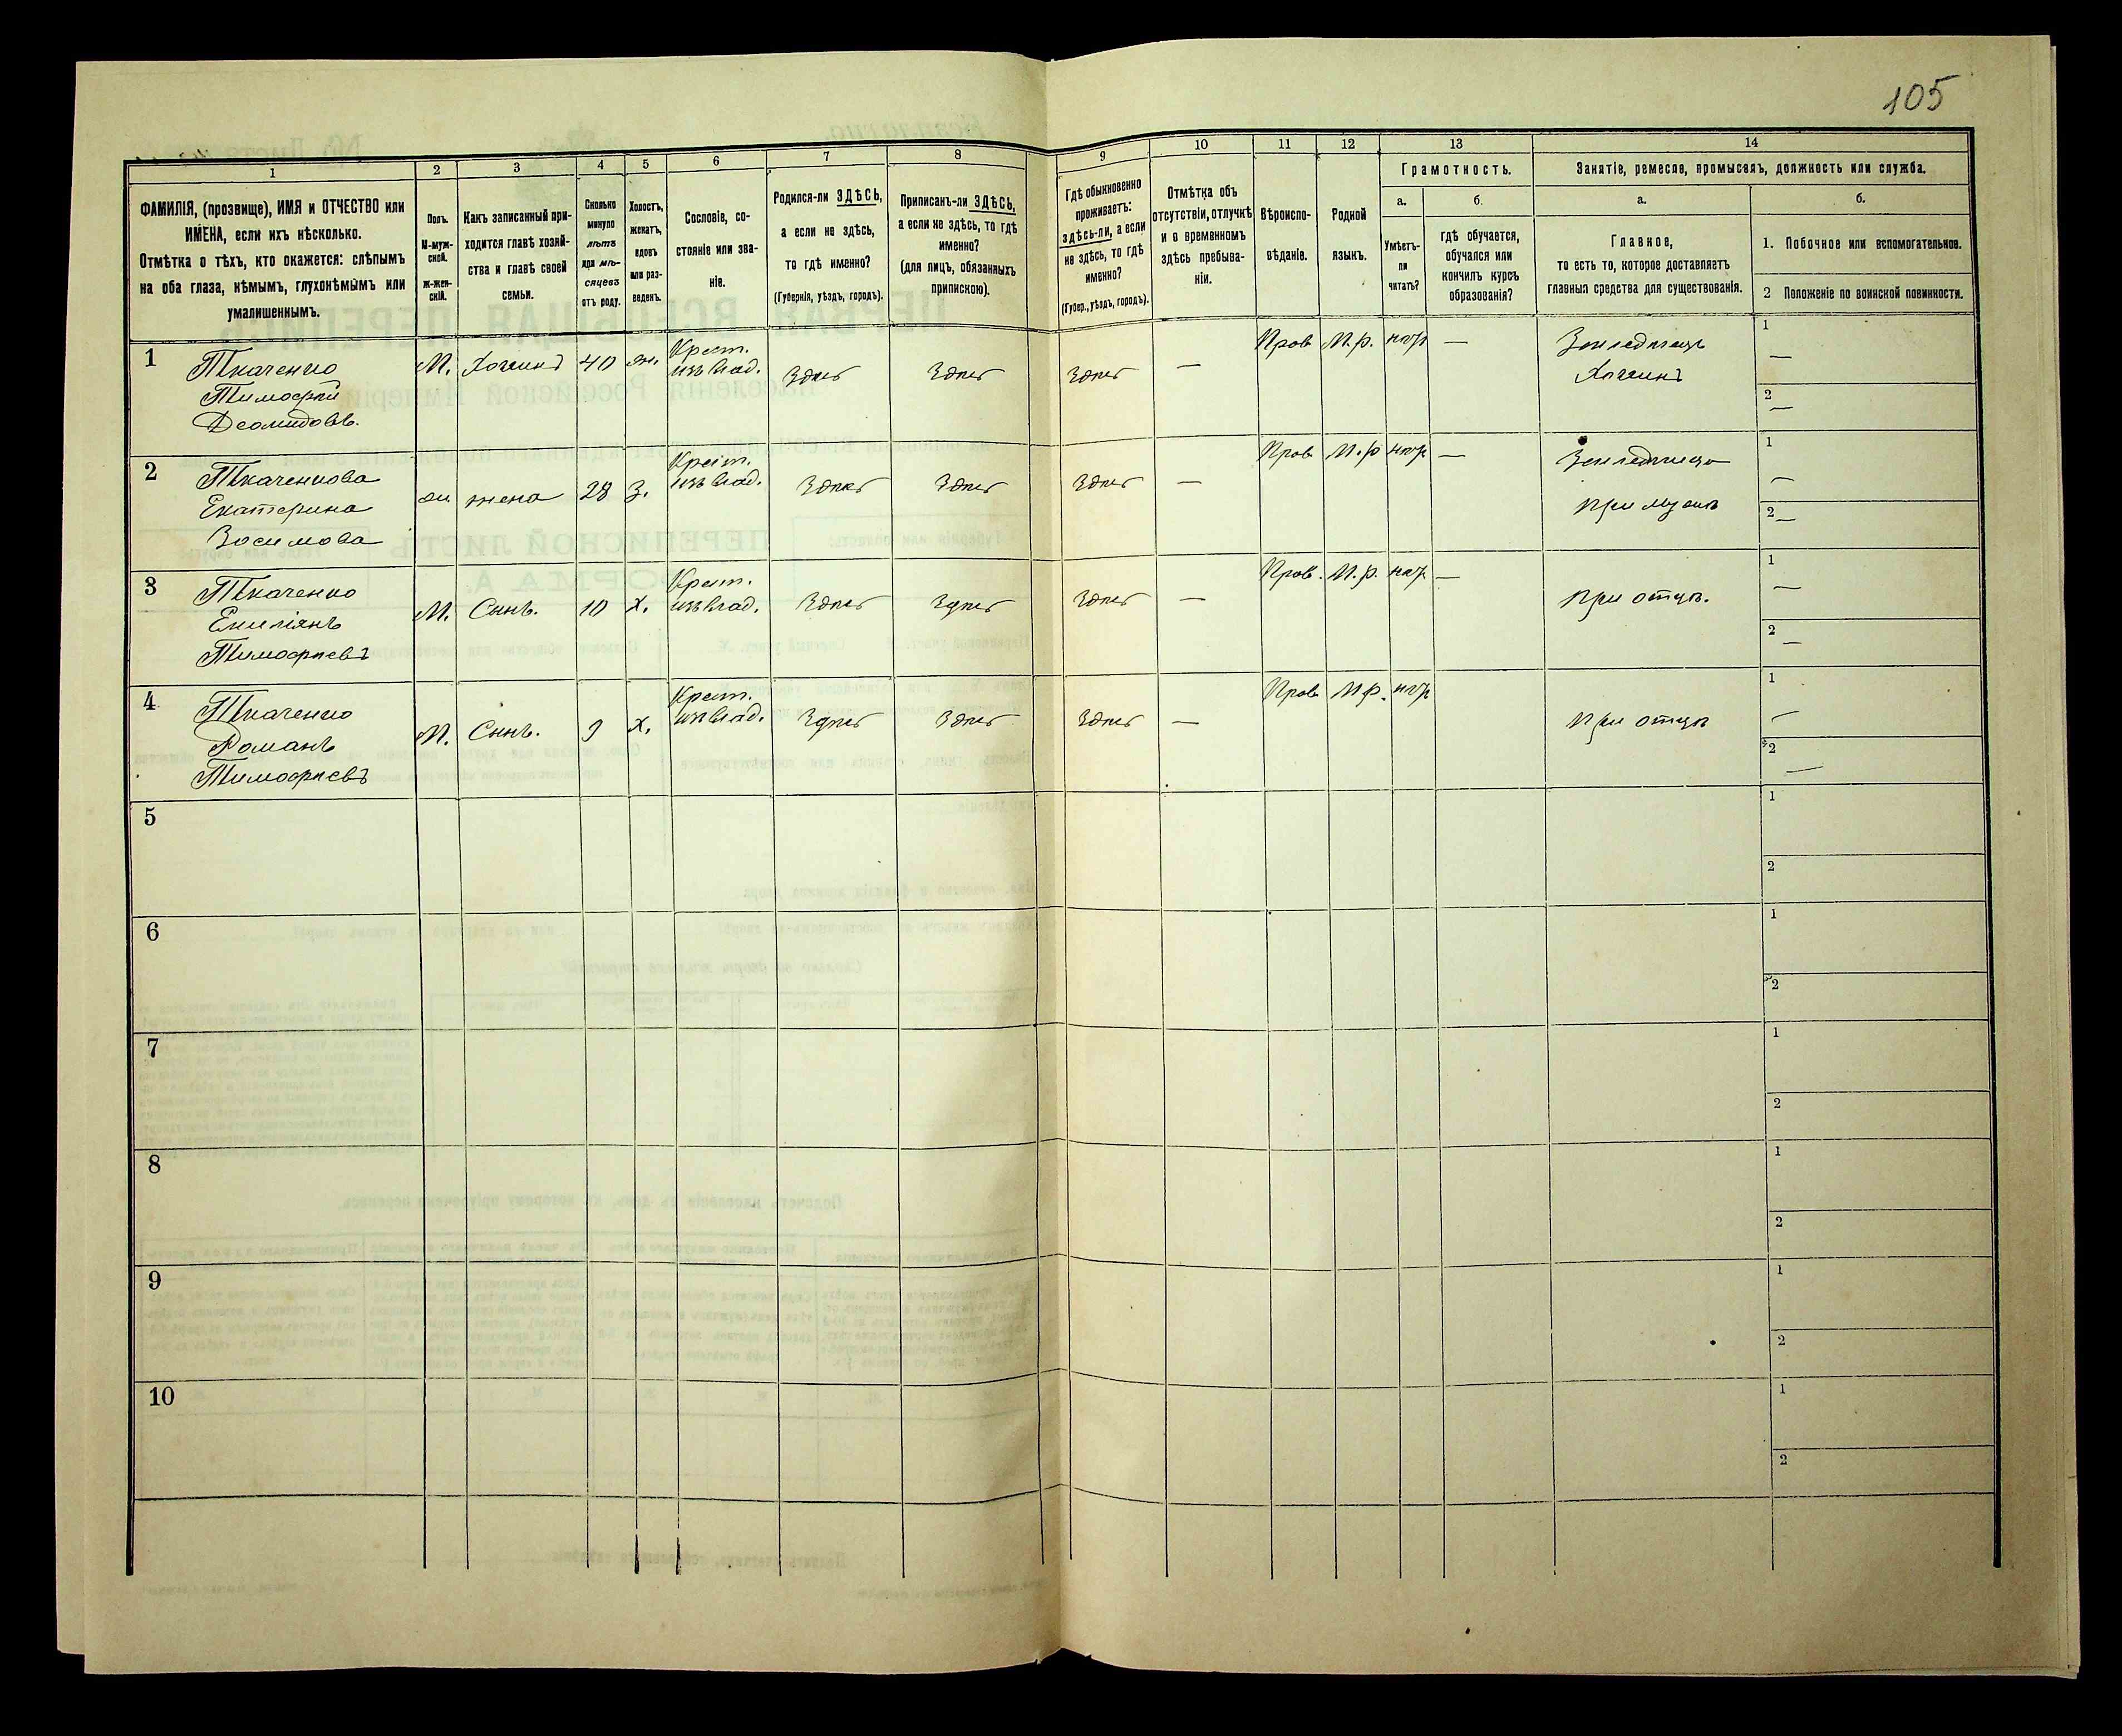 105
1
2
3
4
5
6
7
8
9
10
11
12
13
14
ФАМИЛІЯ, (прозвище), ИМЯ и ОТЧЕСТВО или
ИМЕНА, если ихъ нѣсколько.
Отмѣтка о тѣхъ, кто окажется: слѣпымъ
на оба глаза, нѣмымъ, глухонѣмымъ или
умалишеннымъ.
Полъ.
М-муж-
ской.
Ж-жен-
скій.
Какъ записанный при-
ходится главѣ хозяй-
ства и главѣ своей
семьи.
Сколько
минуло
лѣтъ
или мѣ-
сяцевъ
отъ роду.
Холостъ,
женатъ,
вдовъ
или раз-
веденъ.
Сословіе, со-
стояніе или зва-
ніе.
Родился-ли ЗДѢСЬ,
а если не здѣсь,
то гдѣ именно?
(Губернія, уѣздъ, городъ).
Приписанъ-ли ЗДѢСЬ,
а если не здѣсь, то гдѣ
именно?
(для лицъ, обязанныхъ
припискою).
Гдѣ обыкновенно
проживаетъ:
здѣсь-ли, а если
не здѣсь, то гдѣ
именно?
(Губер., уѣздъ, городъ).
Отмѣтка объ
отсутствіи, отлучкѣ
и о временномъ
здѣсь пребыва-
ніи.
Вѣроиспо-
вѣданіе.
Родной
языкъ.
Грамотность.
а.
Умѣетъ-
ли
читать?
б.
гдѣ обучается,
обучался или
кончилъ курсъ
образованія?
Занятіе, ремесло, промыселъ, должность или служба.
а.
Главное,
то есть то, которое доставляетъ
главныя средства для существованія.
б.
1. Побочное или вспомогательное.
2 Положеніе по воинской повинности.
1
Ткаченко
Тимофѣй
Деомидовъ.
М.
Хозяинъ
40
жн.
Крест.
изъ влад.
Здѣсь
Здѣсь
Здѣсь
—
Прав
М.р.
нѣтъ
—
Земледѣлецъ
Хозяинъ
1
—
2
—
2
Ткаченкова
Екатерина
Зосимова
ж
жена
28
З.
Крест.
изъ влад.
Здѣсь
Здѣсь
Здѣсь
—
Прав
М.р
нѣтъ
—
при мужѣ
1
—
2
—
3
Ткаченко
Емиліянъ
Тимофѣевъ
М.
Сынъ.
10
х.
Крест.
изъ влад.
Здѣсь
Здѣсь
Здѣсь
—
Прав.
М.р.
нѣтъ
—
при отцѣ.
1
—
2
—
4
Ткаченко
Романъ
Тимофѣевъ
М.
Сынъ.
9
х.
Крест.
изъ влад.
Здѣсь
Здѣсь
Здѣсь
—
Прав
М.р.
нѣтъ
при отцѣ
1
—
2
—
5
1
2
6
1
2
7
1
2
8
1
2
9
1
2
10
1
2